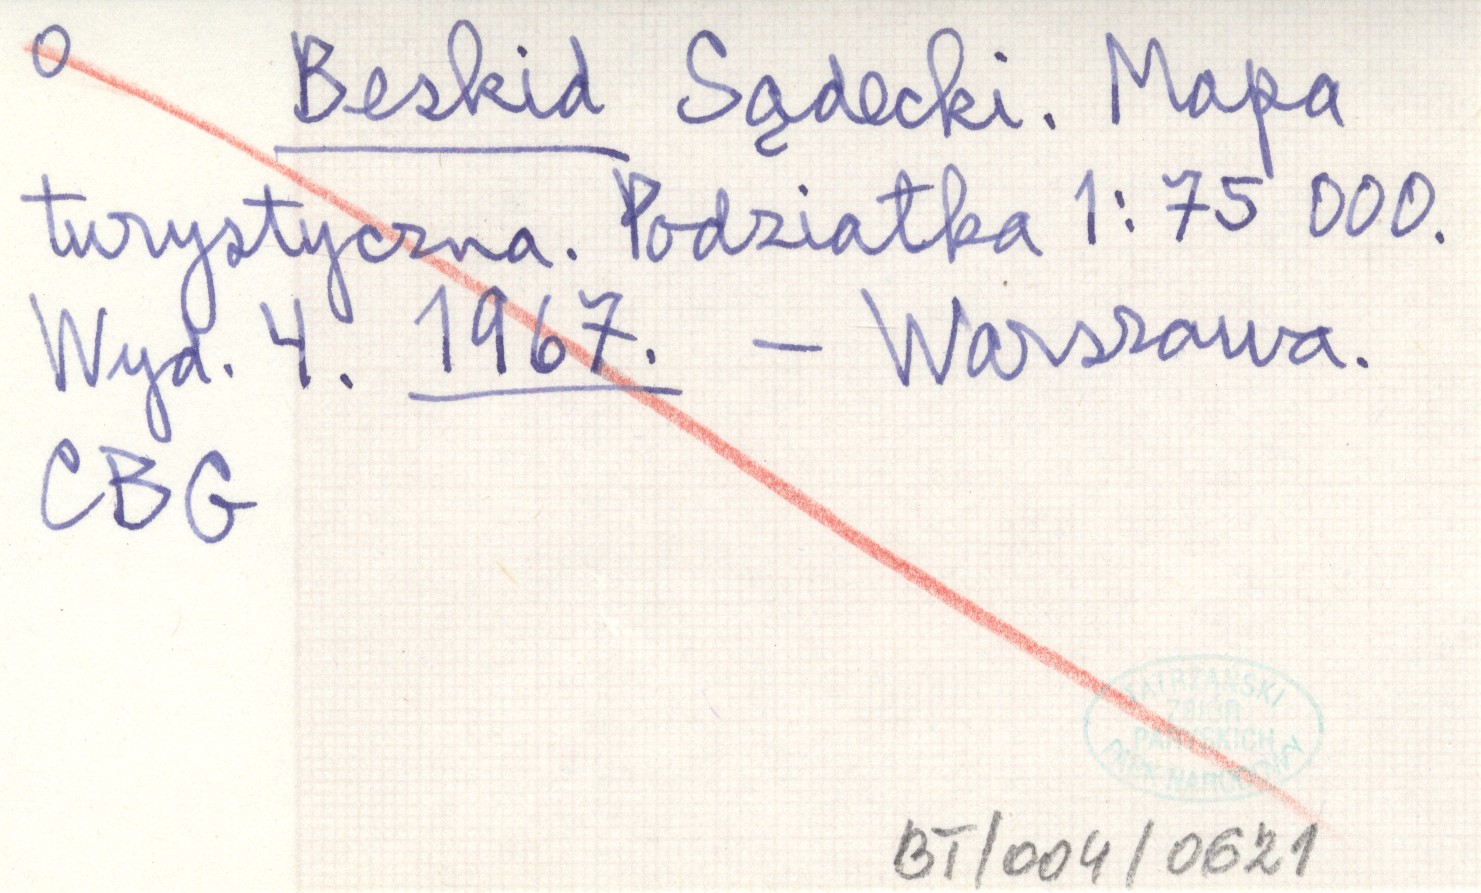 O Beskid Sądecki. Mapa
turystyczna. Podziałka 1:75 000.
Wyd. 4. 1967. – Warszawa.
CBG
TATRZAŃSKI
ZBIÓR
PARYSKICH
PARK NARODOWY
BT/004/0621